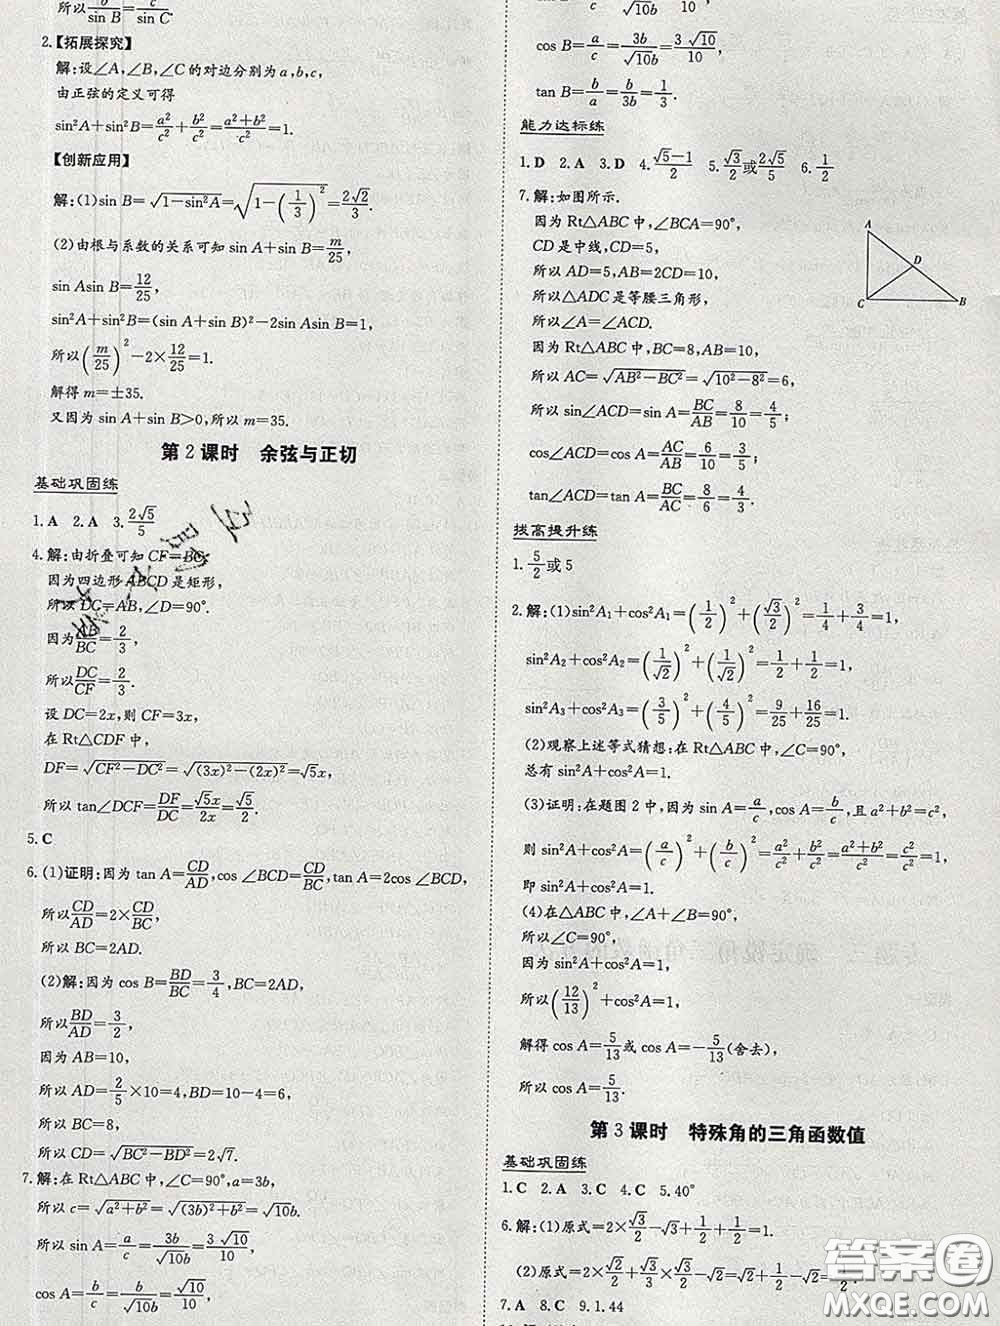 所以b/sin B=c/sin C
2.【拓展探究】
解:设∠A,∠B,∠C的对边分别为a,b,c,
由正弦的定义可得
sin²A+sin²B=a²/c²+b²/c²=(a²+b²)/c²=1.
【创新应用】
解:(1)sin B=√(1-sin²A)=√(1-(1/3)²)=2√2/3.
(2)由根与系数的关系可知 sin A+sin B=m/25,
sin Asin B=12/25,
sin²A+sin²B=(sin A+sin B)²-2sin Asin B=1,
所以(m/25)²-2×12/25=1.
解得 m=±35.
又因为 sin A+sin B>0,所以 m=35.
第2课时 余弦与正切
基础巩固练
1.A 2.A 3.2√5/5
4.解:由折叠可知 CF=BC.
因为四边形 ABCD 是矩形,
所以 DC=AB,∠D=90°.
因为AB/BC=2/3,
所以DC/CF=2/3.
设 DC=2x,则 CF=3x,
在 Rt△CDF 中,
DF=√(CF²-DC²)=√((3x)²-(2x)²)=√5x,
所以 tan∠DCF=DF/DC=√5x/2x=√5/2.
5.C
6.(1)证明:因为 tan A=CD/AD,cos ∠BCD=CD/BC,tan A=2cos ∠BCD,
所以CD/AD=2×CD/BC,
所以 BC=2AD.
(2)解:因为 cos B=BD/BC=3/4,BC=2AD,
所以BD/AD=3/2.
因为 AB=10,
所以 AD=2/5×10=4,BD=10-4=6,
所以 BC=8,
所以 CD=√(BC²-BD²)=2√7.
7.解:在 Rt△ABC 中,∠C=90°,a=3b,
所以 c=√(a²+b²)=√((3b)²+b²)=√10b.
所以 sin A=a/c=3b/√10b=3√10/10,
cos A=b/c=b/√10b=√10/10,
cos B=a/c=3b/√10b=3√10/10,
tan B=b/a=b/3b=1/3.
能力达标练
1.D 2.A 3.D 4.(√5-1)/2 5.√3/2或2√5/5 6.1/2
7.解:如图所示.
因为 Rt△ABC 中,∠BCA=90°,
CD 是中线,CD=5,
所以 AD=5,AB=2CD=10,
所以△ADC 是等腰三角形,
所以∠A=∠ACD.
因为 Rt△ABC 中,BC=8,AB=10,
所以 AC=√(AB²-BC²)=√(10²-8²)=6,
所以 sin∠ACD=sin A=BC/AB=8/10=4/5;
cos∠ACD=cos A=AC/AB=6/10=3/5;
tan∠ACD=tan A=BC/AC=8/6=4/3.
A
D
C
B
拔高提升练
1.5/2或5
2.解:(1)sin²A₁+cos²A₁=(1/2)²+(√3/2)²=1/4+3/4=1,
sin²A₂+cos²A₂=(1/√2)²+(1/√2)²=1/2+1/2=1,
sin²A₃+cos²A₃=(3/5)²+(4/5)²=9/25+16/25=1.
(2)观察上述等式猜想:在 Rt△ABC 中,∠C=90°,
总有 sin²A+cos²A=1.
(3)证明:在题图 2 中,因为 sin A=a/c,cos A=b/c,且 a²+b²=c²,
则 sin²A+cos²A=(a/c)²+(b/c)²=a²/c²+b²/c²=(a²+b²)/c²=c²/c²=1,
即 sin²A+cos²A=1.
(4)在△ABC 中,∠A+∠B=90°,
所以∠C=90°,
所以(12/13)²+cos²A=1,
解得 cos A=5/13或 cos A=-5/13(舍去),
所以 cos A=5/13.
第3课时 特殊角的三角函数值
基础巩固练
1.C 2.A 3.C 4.C 5.40°
6.解:(1)原式=2×√3/2-√3+1/2+1/2=1.
(2)原式=2×√2/2+√3/2×√3/2-√2=√2+3/4-√2+1/2.
7.A 8.C 9.1.44
答案圈
MXQE.COM